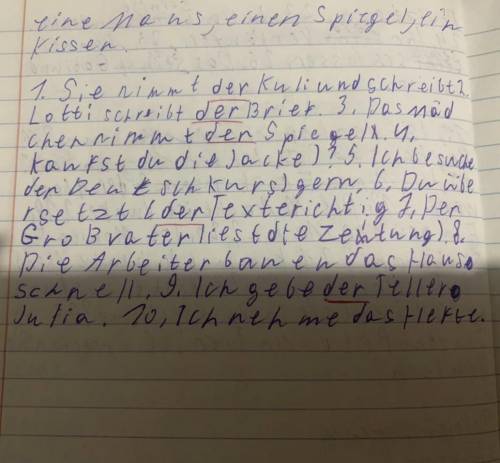 eine Maus, einen Spiegel, ein
Kissen.
1. Sie nimmt der Kuli und schreibt 2.
Lotti schreibt der Brief. 3. Das Mäd
chen nimmt der Spiegel. 4.
kaufst du die Jacke)? 5. Ich besuche
der Deutschkurs) gern. 6. Du übe
rsetzt (der Texte richtig 7. Der
Großvater liest die Zeintung). 8.
Die Arbeiter bauen das Haus
schnell. 9. Ich gebe der Teller
Julia. 10, Ich nehme das Hefte.